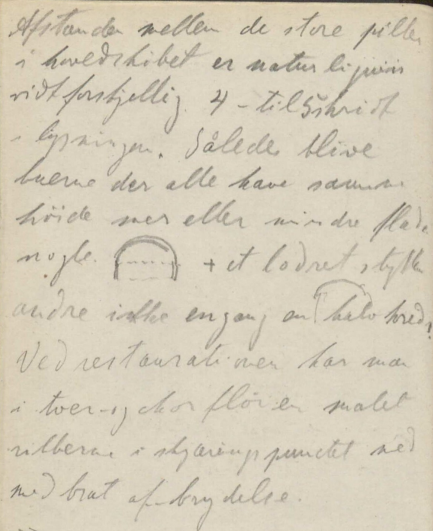 Afstanden mellem de store piller
i hovedskibet er naturligviis
vidt forskjellig. 4 - til 5 skridt
- lysningen. Således blive
buerne der alle have samme
höide mer eller mindre flade
nogle + et lodret stykke
andre ikke engang en halv kreds!
Ved restaurationen har man
i tver- og chor fløien malet
ribberne i skjæringspunctet ned
med brat afbrydelse.